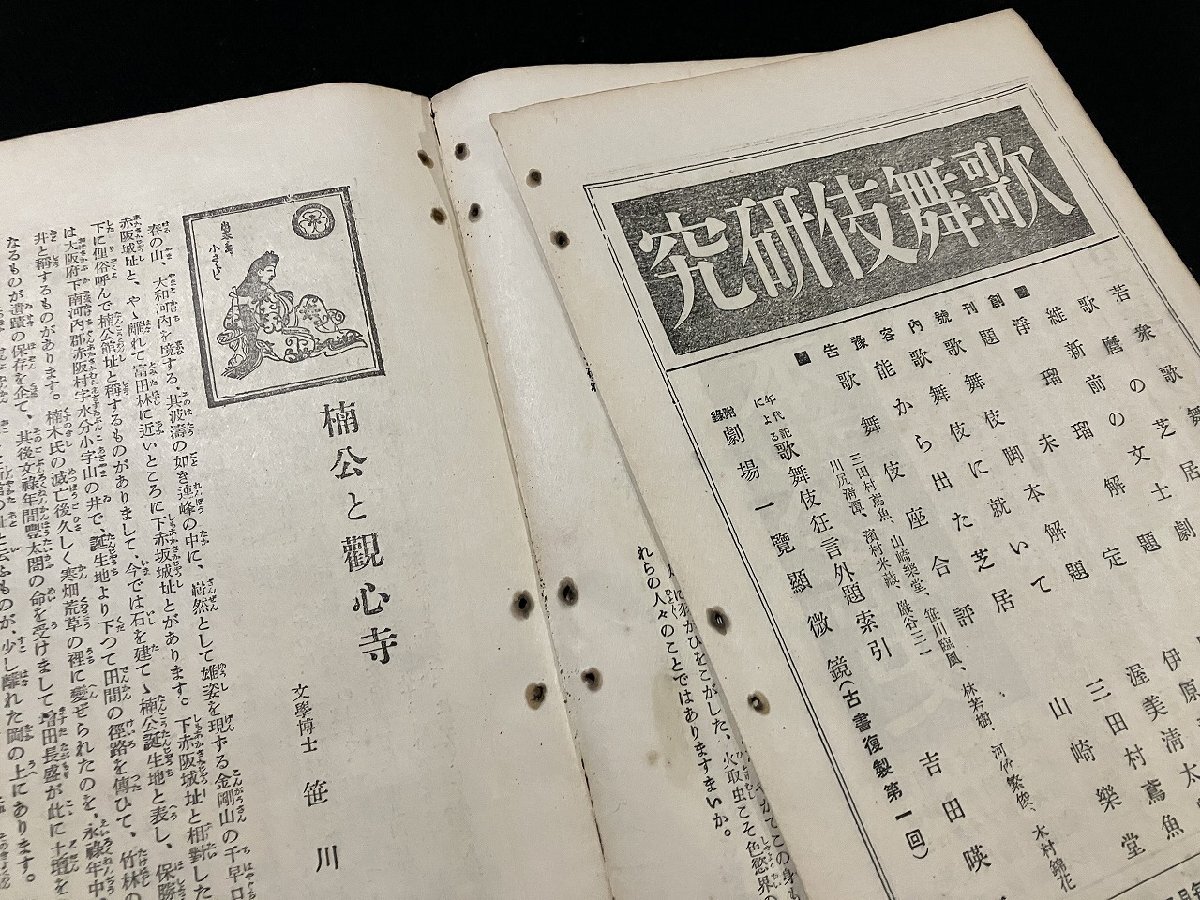 歌舞伎研究
若衆歌舞
歌麿の芝居劇
維新前の文士題
浄瑠璃解定
題未
創刊號内容豫告
歌舞伎脚本解題
歌舞伎に就いて
能から出た芝居
歌舞伎座合評
三田村鳶魚、山崎樂堂、笹川臨風、林若樹、河竹繁俊、木村錦花
川尻清潭、濱村米藏、巖谷三一
年代記による
歌舞伎狂言外題索引
附錄
劇場一覽顯微鏡(古書復製第一回)
伊原
渥美清太
三田村鳶魚
山崎樂堂
吉田暎
がてこの身も
にわがひをこがした、火取虫こそ色慾界の
れらの人々のことではありますまいか。
楠公と觀心寺
文學博士 笹川
春の山、大和河内を境する、其波濤の如き連峰の中に、嶄然として雄姿を現する金剛山の千早口
赤阪城址と、やゝ離れて富田林に近いところに下赤坂城址とがあります。下赤阪城址と相對した
下に俚俗呼んで楠公館址と稱するものがありまして、今では石を建てゝ楠公誕生地と表し、保勝
は大阪府下南河内郡赤阪村字水分小字山の井で、誕生地より下つて田間の徑路を傳ひて、竹林の
井と稱するものがあります。楠木氏の滅亡後久しく寒畑荒草の裡に委せられたのを、永祿年中
なるものが遺蹟の保存を企て、其後文祿年間豐太閤の命を受けまして增田長盛が此に土壇を
の址と云ふものが、少し離れた岡の上にあります。